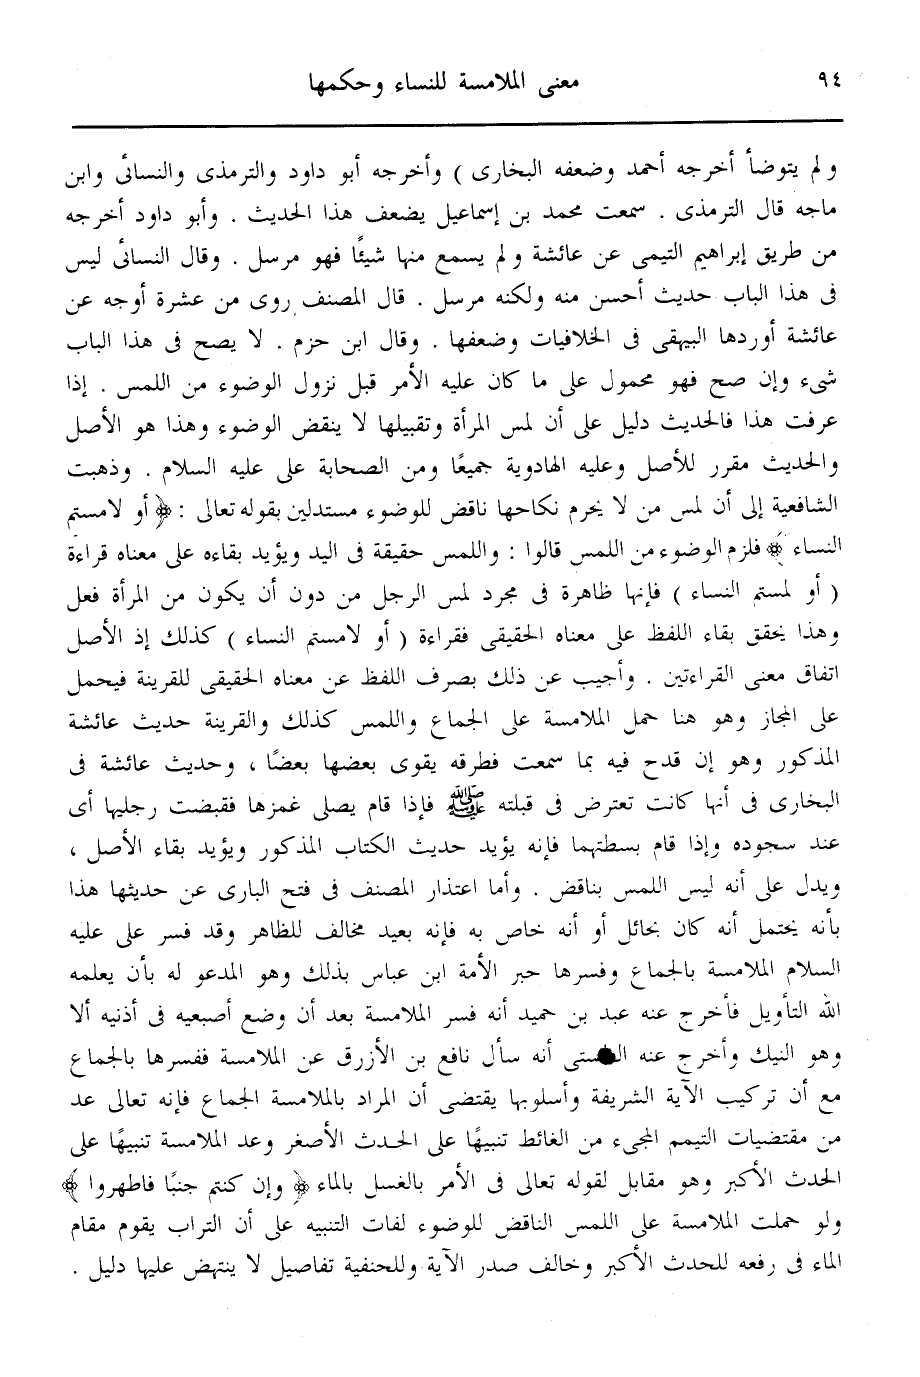 ٩٤ معنى الملامسة للنساء وحكمها
ولم يتوضأ أخرجه أحمد وضعفه البخارى ) وأخرجه أبو داود والترمذى والنسائى وابن
ماجه قال الترمذى . سمعت محمد بن إسماعيل يضعف هذا الحديث . وأبو داود أخرجه
من طريق إبراهيم التيمى عن عائشة ولم يسمع منها شيئًا فهو مرسل . وقال النسائى ليس
فى هذا الباب حديث أحسن منه ولكنه مرسل . قال المصنف روى من عشرة أوجه عن
عائشة أوردها البيهقى فى الخلافيات وضعفها . وقال ابن حزم . لا يصح فى هذا الباب
شىء وإن صح فهو محمول على ما كان عليه الأمر قبل نزول الوضوء من اللمس . إذا
عرفت هذا فالحديث دليل على أن لمس المرأة وتقبيلها لا ينقض الوضوء وهذا هو الأصل
والحديث مقرر للأصل وعليه الهادوية جميعًا ومن الصحابة على عليه السلام . وذهبت
الشافعية إلى أن لمس من لا يحرم نكاحها ناقض للوضوء مستدلين بقوله تعالى : ﴿ أو لامستم
النساء ﴾ فلزم الوضوء من اللمس قالوا : واللمس حقيقة فى اليد ويؤيد بقاءه على معناه قراءة
( أو لمستم النساء ) فإنها ظاهرة فى مجرد لمس الرجل من دون أن يكون من المرأة فعل
وهذا يحقق بقاء اللفظ على معناه الحقيقى فقراءة ( أو لامستم النساء ) كذلك إذ الأصل
اتفاق معنى القراءتين . وأجيب عن ذلك بصرف اللفظ عن معناه الحقيقى للقرينة فيحمل
على المجاز وهو هنا حمل الملامسة على الجماع واللمس كذلك والقرينة حديث عائشة
المذكور وهو إن قدح فيه بما سمعت فطرقه يقوى بعضها بعضًا ، وحديث عائشة فى
البخارى فى أنها كانت تعترض فى قبلته ﷺ فإذا قام يصلى غمزها فقبضت رجليها أى
عند سجوده وإذا قام بسطتهما فإنه يؤيد حديث الكتاب المذكور ويؤيد بقاء الأصل ،
ويدل على أنه ليس اللمس بناقض . وأما اعتذار المصنف فى فتح البارى عن حديثها هذا
بأنه يحتمل أنه كان بحائل أو أنه خاص به فإنه بعيد مخالف للظاهر وقد فسر على عليه
السلام الملامسة بالجماع وفسرها حبر الأمة ابن عباس بذلك وهو المدعو له بأن يعلمه
الله التأويل فأخرج عنه عبد بن حميد أنه فسر الملامسة بعد أن وضع أصبعيه فى أذنيه ألا
وهو النيك وأخرج عنه أنه سأل نافع بن الأزرق عن الملامسة ففسرها بالجماع
مع أن تركيب الآية الشريفة وأسلوبها يقتضى أن المراد بالملامسة الجماع فإنه تعالى عد
من مقتضيات التيمم المجىء من الغائط تنبيهًا على الحدث الأصغر وعد الملامسة تنبيهًا على
الحدث الأكبر وهو مقابل لقوله تعالى فى الأمر بالغسل بالماء ﴿ وإن كنتم جنبًا فاطهروا ﴾
ولو حملت الملامسة على اللمس الناقض للوضوء لفات التنبيه على أن التراب يقوم مقام
الماء فى رفعه للحدث الأكبر وخالف صدر الآية وللحنفية تفاصيل لا ينتهض عليها دليل .